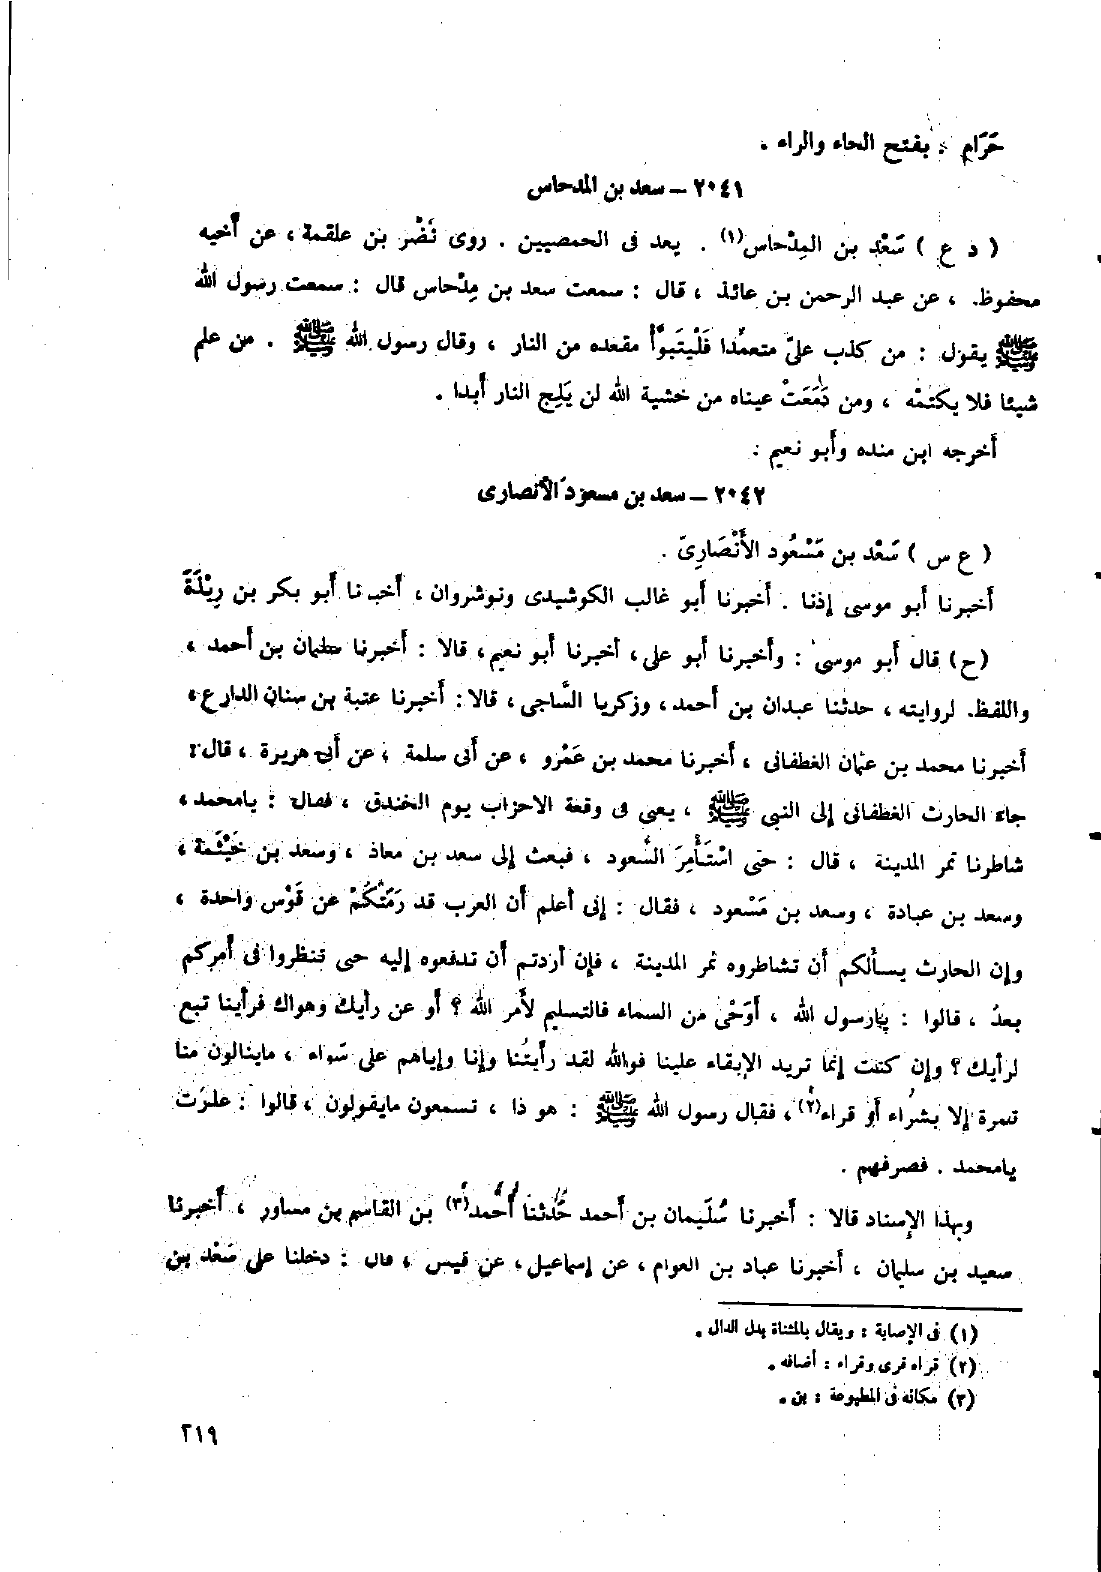 حَرَام : بفتح الحاء والراء .
٢٠٤١ – سعد بن المدحاس
( د ع ) سَعْد بن المِدْحاس(١) . يعد فى الحمصيين . روى نَصْر بن علقمة ، عن أخيه
محفوظ ، عن عبد الرحمن بن عائذ ، قال : سمعت سعد بن مِدْحاس قال : سمعت رسول الله
ﷺ يقول : من كذب علىّ متعمِّدا فَلْيتَبوَّأ مقعده من النار ، وقال رسول الله ﷺ . من علم
شيئا فلا يكتمْه ، ومن دَمَعَتْ عيناه من خشية الله لن يَلِج النار أبدا .
أخرجه ابن منده وأبو نعيم :
٢٠٤٢ – سعد بن مسعود الأنصارى
( ع س ) سَعْد بن مَسْعُود الأَنْصَارِىّ .
أخبرنا أبو موسى إذنا . أخبرنا أبو غالب الكوشيدى ونوشروان ، أخبرنا أبو بكر بن رِيْذَةَ
(ح) قال أبو موسى : وأخبرنا أبو على ، أخبرنا أبو نعيم ، قالا : أخبرنا سليمان بن أحمد ،
واللفظ لروايته ، حدثنا عبدان بن أحمد ، وزكريا السَّاجى ، قالا : أخبرنا عتبة بن سنان الدارع ،
أخبرنا محمد بن عثمان الغطفانى ، أخبرنا محمد بن عَمْرو ، عن أبى سلمة ، عن أبى هريرة ، قال :
جاء الحارث الغطفانى إلى النبى ﷺ ، يعنى فى وقعة الاحزاب يوم الخندق ، فقال : يامحمد ،
شاطرنا تمر المدينة ، قال : حتى اسْتَأْمِرَ السُّعود ، فبعث إلى سعد بن معاذ ، وسعد بن خَيْثَمة ،
وسعد بن عبادة ، وسعد بن مَسْعود ، فقال : إنى أعلم أن العرب قد رَمَتْكُمْ عن قَوْس واحدة ،
وإن الحارث يسألكم أن تشاطروه تمر المدينة ، فإن أردتم أن تدفعوه إليه حتى تنظروا فى أمركم
بعدُ ، قالوا : يارسول الله ، أوَحْىٌ من السماء فالتسليم لأمر الله ؟ أو عن رأيك وهواك فرأينا تبع
لرأيك ؟ وإن كنت إنما تريد الإبقاء علينا فوالله لقد رأيتُنا وإنا وإياهم على سَواء ، ماينالون منا
تمرة إلا بشراء أو قراء(٢) ، فقال رسول الله ﷺ : هو ذا ، تسمعون مايقولون ، قالوا : غدَرْتَ
يامحمد . فصرفهم .
وبهذا الإسناد قالا : أخبرنا سُلَيمان بن أحمد حَدَّثنا أَحْمد(٣) بن القاسم بن مساور ، أخبرنا
سعيد بن سليمان ، أخبرنا عباد بن العوام ، عن إسماعيل ، عن قيس ، قال : دخلنا على سَعْد بن
(١) فى الإصابة : ويقال بالمثناة بدل الدال .
(٢) قراه قرى وقراء : أضافه .
(٣) مكانه فى المطبوعة : بن .
٢١٩